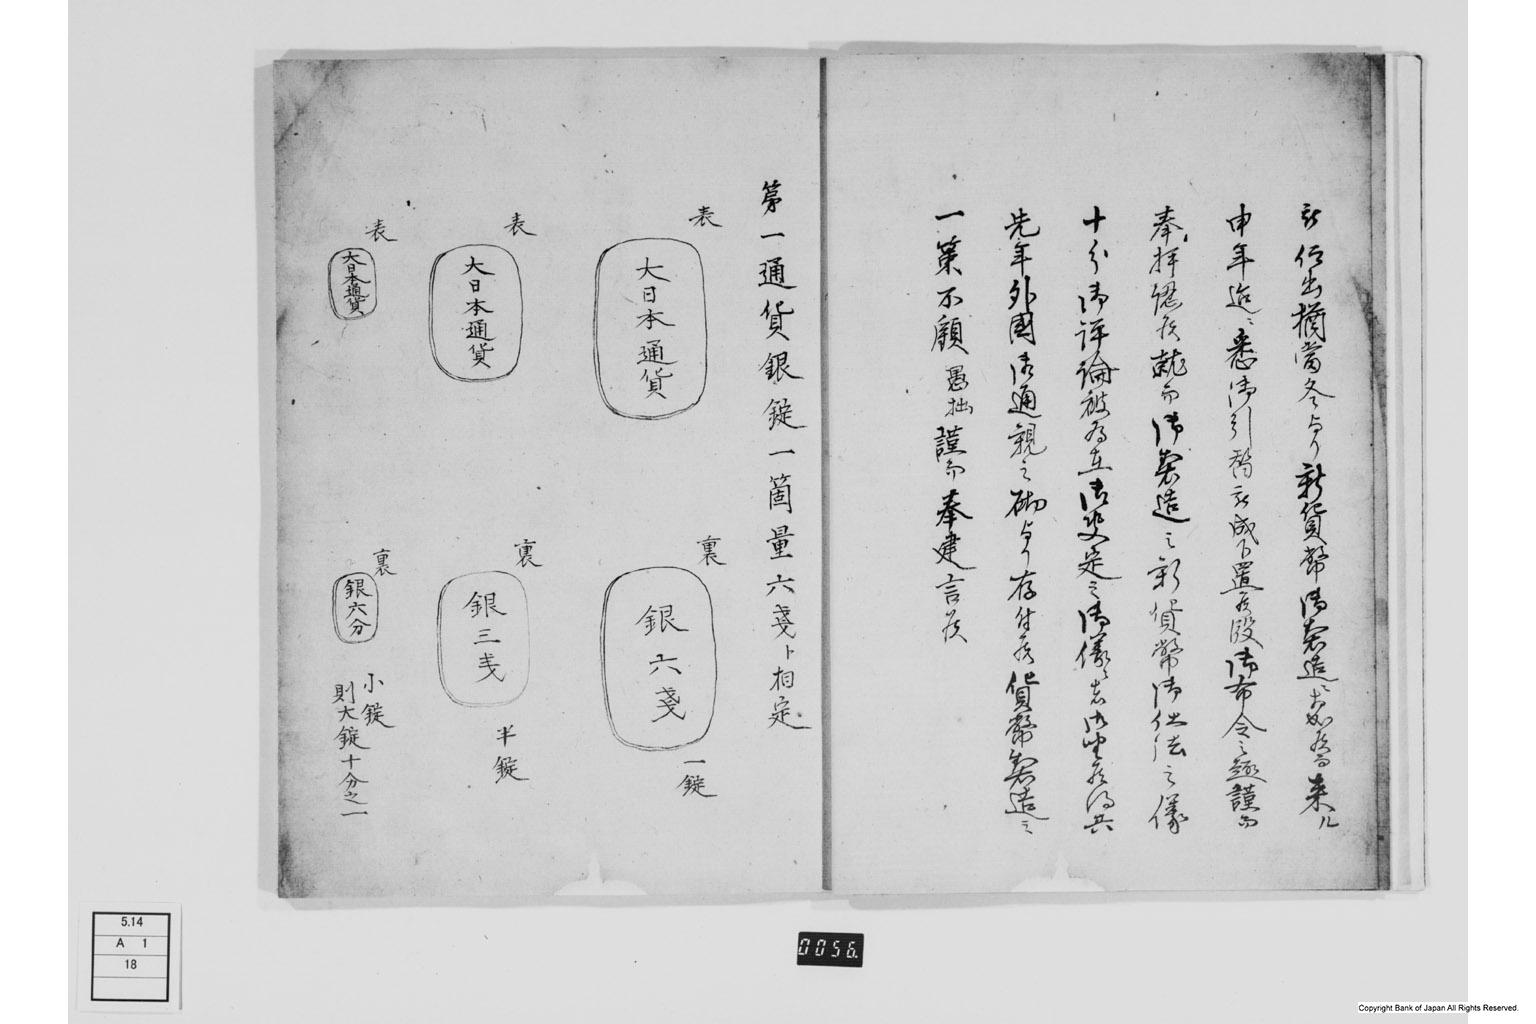 被 仰出猶当冬ゟ新貨幣御製造ニ相成為来ル
申年迄ニ悉御引替被成下置候段御布令之趣謹而
奉拝認候就而御製造之新貨幣御仕法之儀
十分御評論被為在御決定之御儀ニ者御座候得共
先年外国御通親之砌ゟ存付候貨幣製造之
一策不顧愚拙謹而奉建言候
第一通貨銀錠一箇量六戔ト相定
表
大日本通貨
裏
銀六戔
一錠
表
大日本通貨
裏
銀三戔
半錠
表
大日本通貨
裏
銀六分
小錠
則大錠十分之一
5.14
A 1
18
0056.
Copyright Bank of Japan All Rights Reserved.